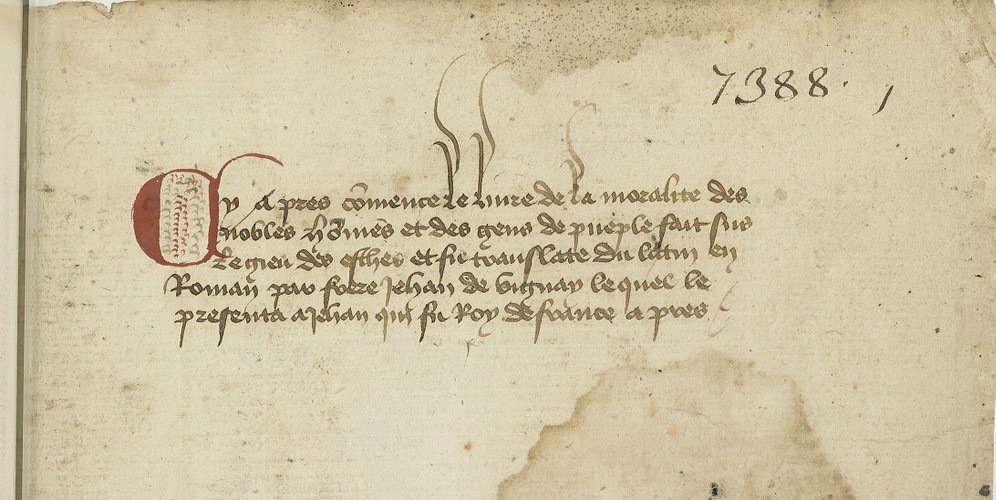 7388.
Cy a pres cōmence le livre de la moralite des
nobles hōmes et des gens de pueple fait sus
le gieu des esches et fu translate du latin en
Roman par frere Jehan de vignay le quel le
presenta a Jehan qui fu Roy de france a pres